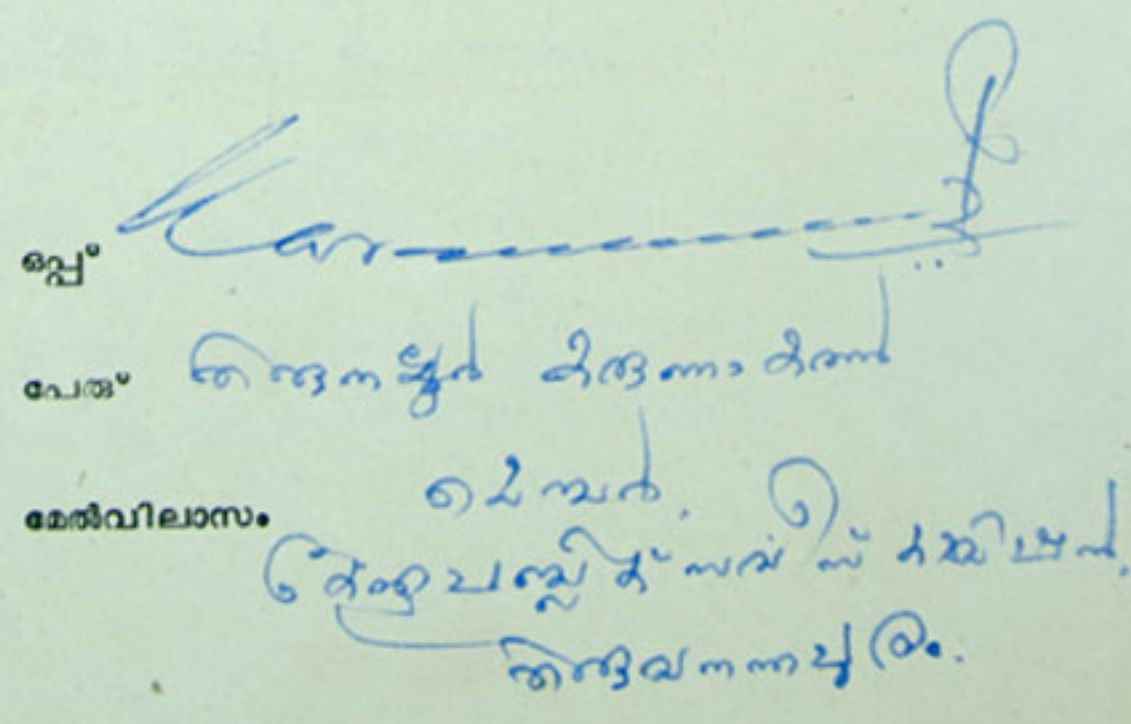 ഒപ്പ്
പേര് തിരുനല്ലൂർ കരുണാകരൻ
മേൽവിലാസം മെമ്പർ,
കേരള പബ്ലിക് സർവീസ് കമ്മിഷൻ,
തിരുവനന്തപുരം.